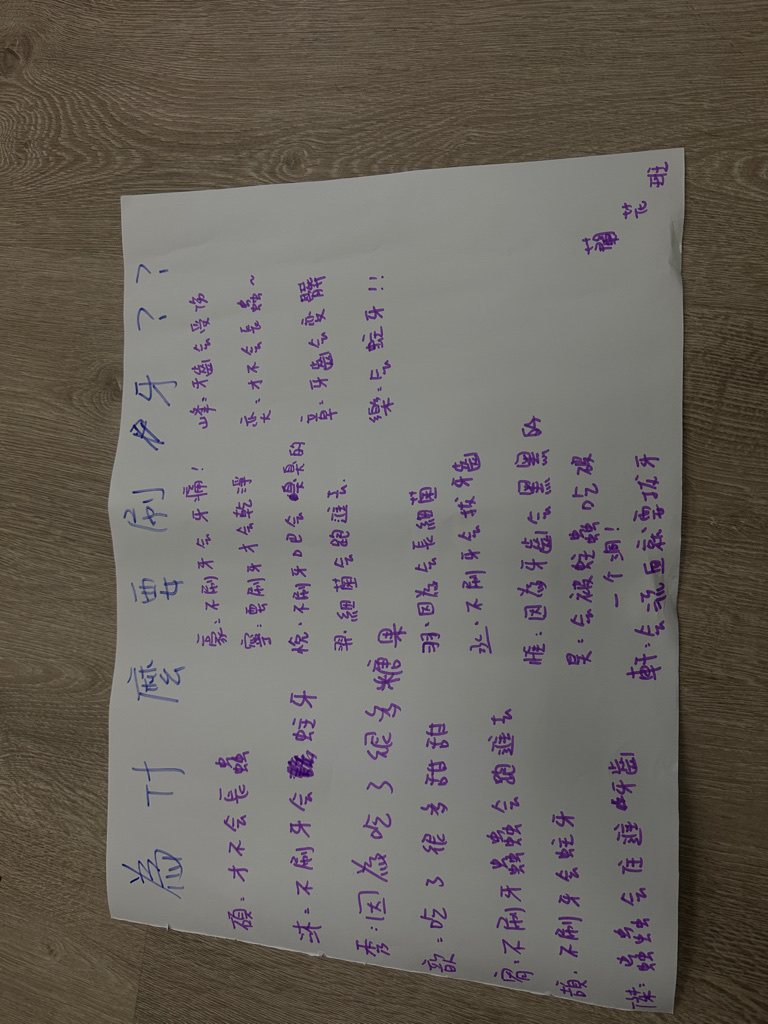 為什麼要刷牙??
碩:才不会長蟲
沐:不刷牙会蛀牙
秀:因為吃了很多糖果
歆:吃了很多甜甜
宥:不刷牙蟲蟲会跑進去
頡:不刷牙会蛀牙
傑:蟲蟲会住進呀齒
豪:不刷牙会牙痛!
寗:要刷牙才会乾淨
悅:不刷牙口巴会臭臭的
羿:細菌会跑進去
羽:因為会長細菌
丞:不刷牙会拔牙齒
惟:因為牙齒会黑黑
昊:会被蛀蟲吃破
一个洞!
軒:会流血就要拔牙
峰:牙齒会受傷
奕:才不会長蟲~
章:牙齒会变髒
樂:会蛀牙!!
蘭花班